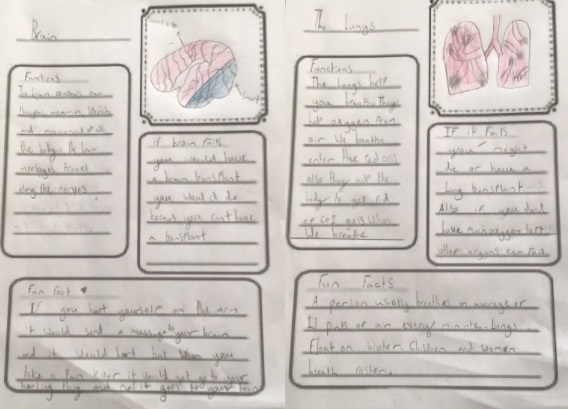 Brain
Functions
The brain controls our
thoughts, memories,
and movement of
the body. The brain
messages travel
along the nerves
if brain Fails
you would have
a brain transplant
you would die
becaus you cant have
a transplant
Fun Fact
If you hurt yourself on the arm
it would send a message to your brain
and it would hurt but when you
take a Pain killer it would not go to your
hurting thing and not it goes to your brain
The Lungs
Functions
The lungs help
you breathe They
take oxygen From
air We breathe
enter the red cells
also they help the
body to get rid
of CO2 gass When
We breathe
IF it Fails
you might
die or have a
lung transplant
Also if you dont
have much oxygen
other organs can Fail
Fun Facts
A person usually breathes in average of
13 pints of air every minute. Lungs
Float on Water. Children and Women
breath faster.